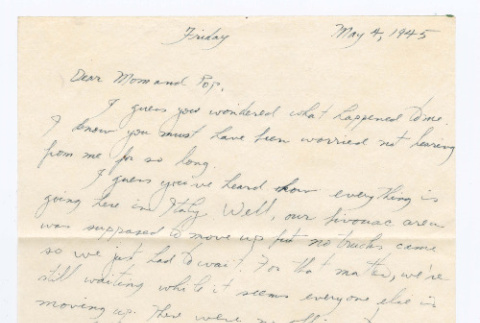 Friday May 4, 1945
Dear Mom and Pop,
I guess you wondered what happened to me.
I know you must have been worried not hearing
from me for so long.
I guess you've heard how everything is
going here in Italy. Well, our bivouac area
was supposed to move up but no trucks came
so we just had to wait. For that matter, we're
still waiting while it seems everyone else is
moving up. There were no